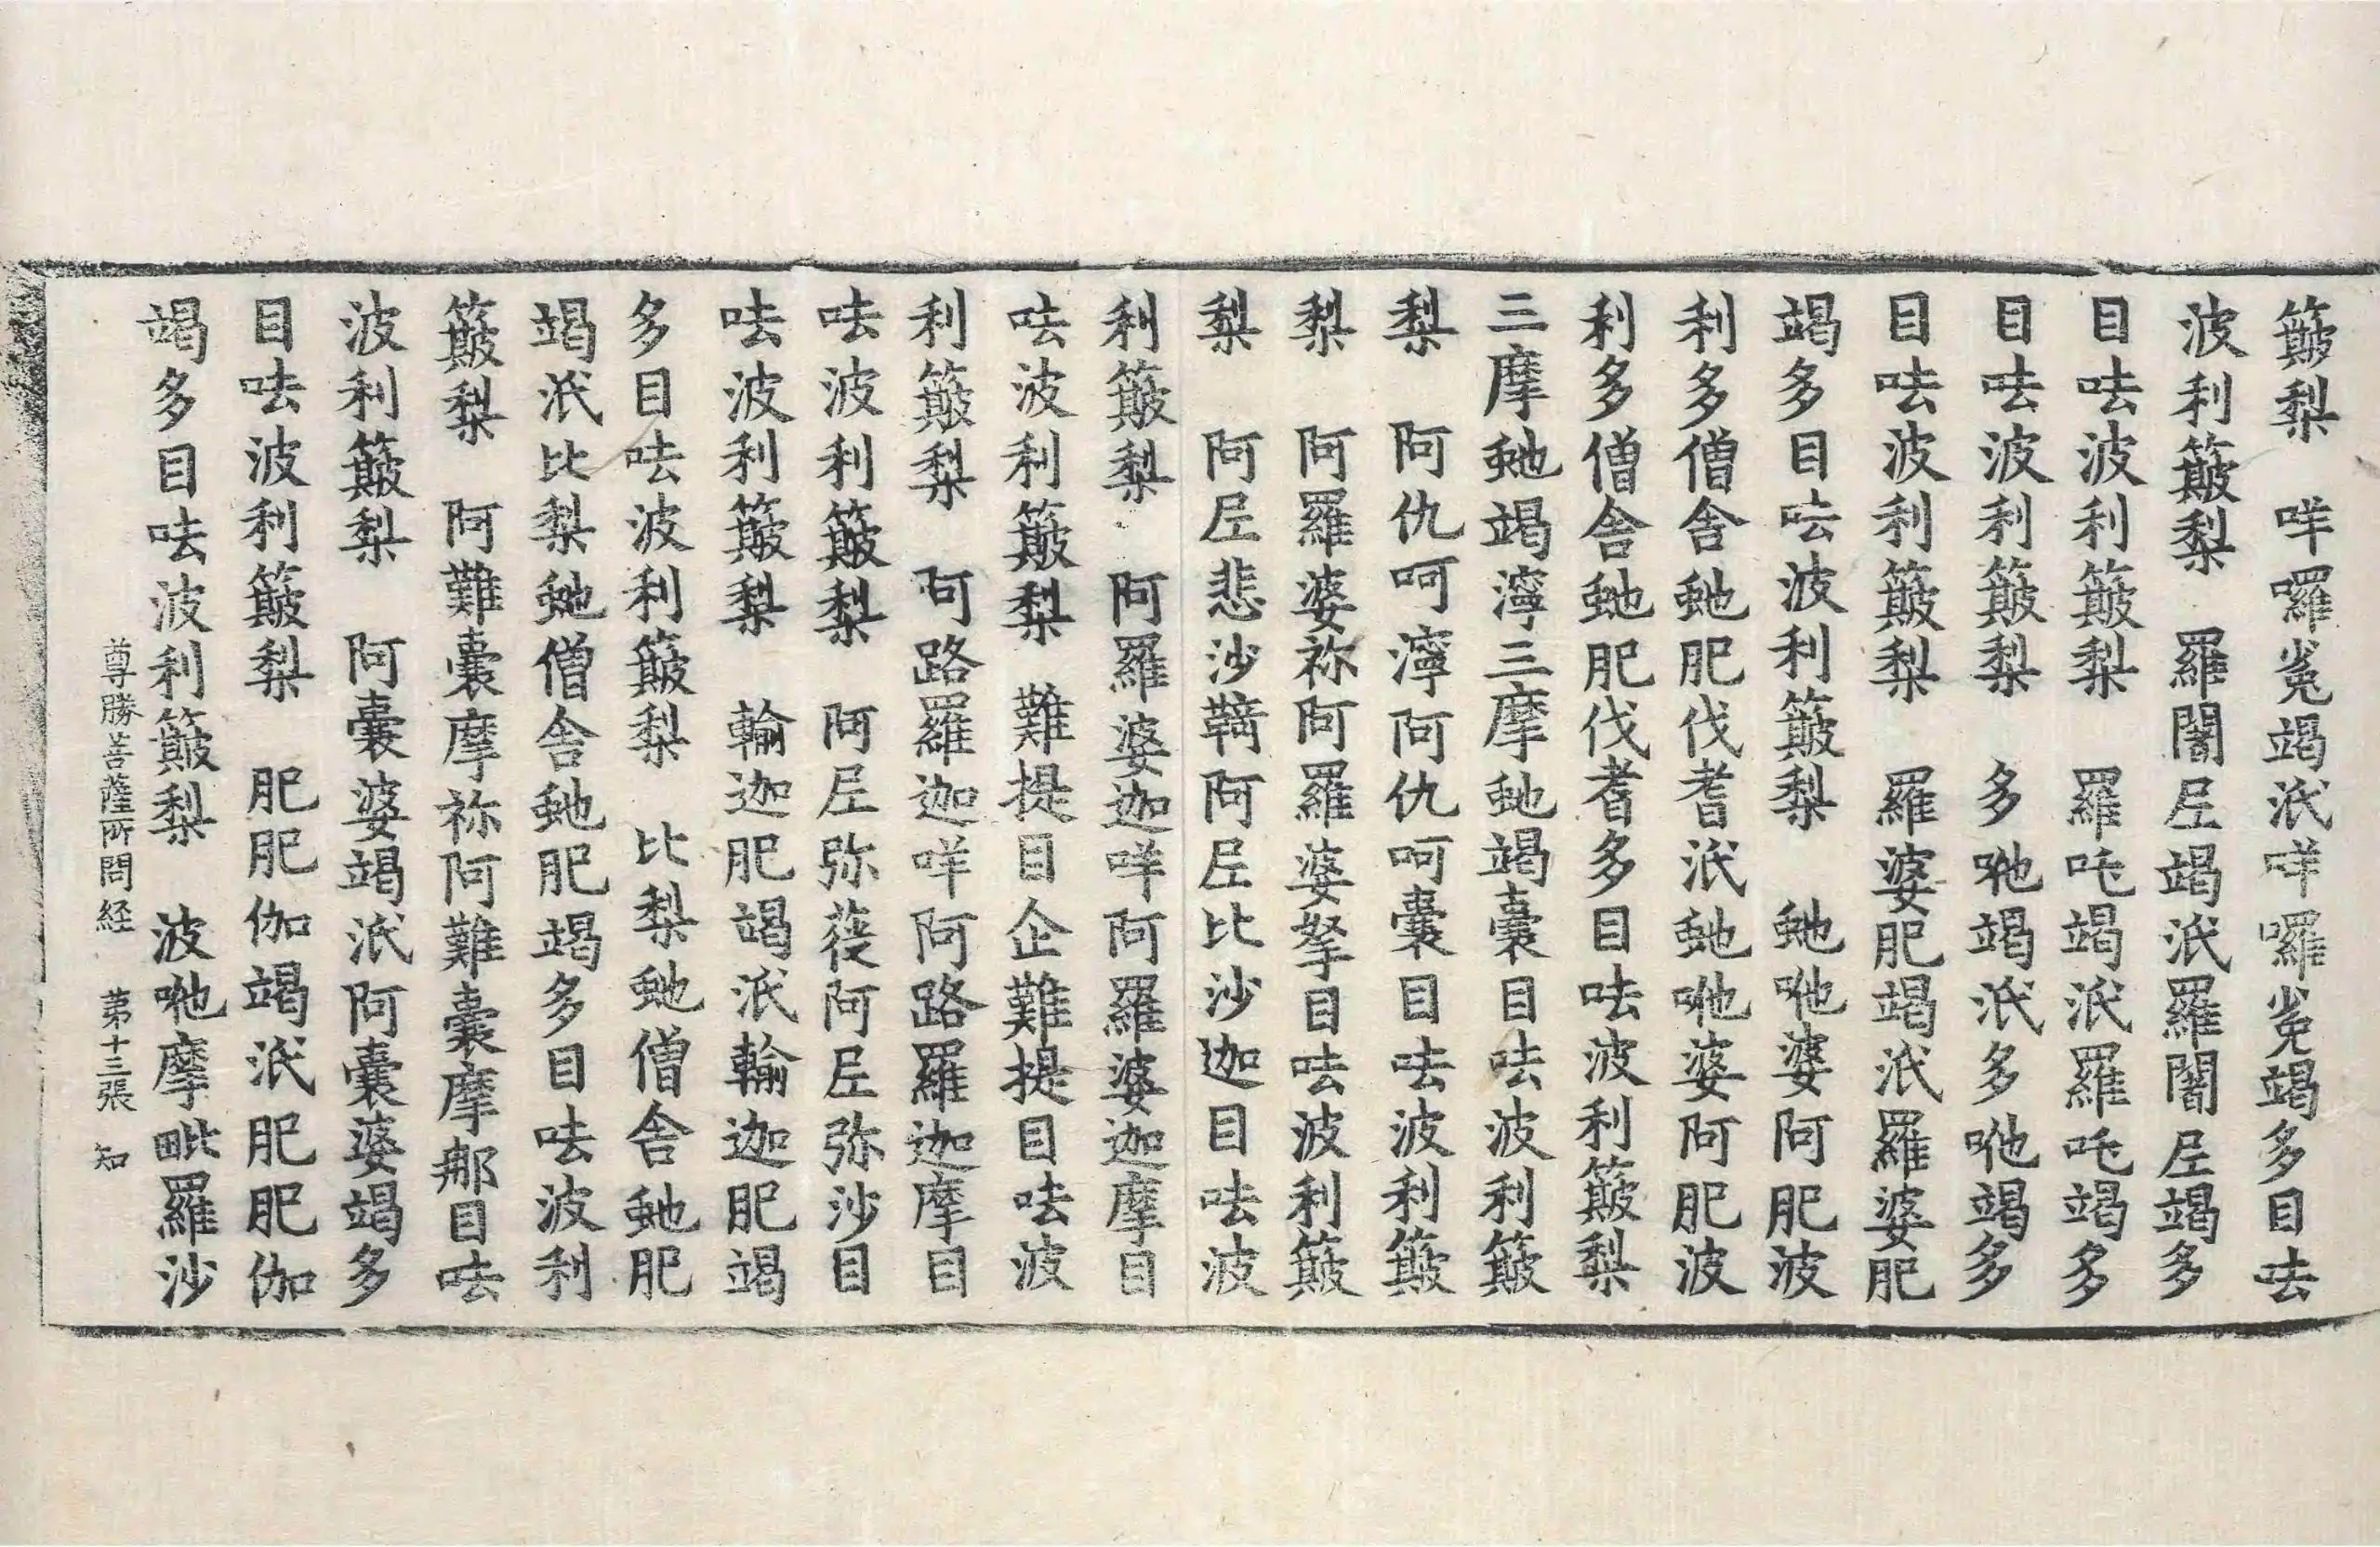 簸梨　咩囉㝹竭泜咩囉㝹竭多目呿
波利簸梨　羅闍𡰱竭泜羅闍𡰱竭多
目呿波利簸梨　羅吒竭泜羅吒竭多
目呿波利簸梨　多吔竭泜多吔竭多
目呿波利簸梨　羅婆肥竭泜羅婆肥
竭多目呿波利簸梨　虵吔婆阿肥波
利多僧舍虵肥伐耆泜虵吔婆阿肥波
利多僧舍虵肥伐耆多目呿波利簸梨
三摩虵竭濘三摩虵竭囊目呿波利簸
梨　阿仇呵濘阿仇呵囊目呿波利簸
梨　阿羅婆祢阿羅婆拏目呿波利簸
梨　阿𡰱悲沙鞞阿𡰱比沙迦目呿波
利簸梨　阿羅婆迦咩阿羅婆迦摩目
呿波利簸梨　難提目企難提目呿波
利簸梨　阿路羅迦咩阿路羅迦摩目
呿波利簸梨　阿𡰱弥蓰阿𡰱弥沙目
呿波利簸梨　輸迦肥竭泜輸迦肥竭
多目呿波利簸梨　比梨虵僧舍虵肥
竭泜比梨虵僧舍虵肥竭多目呿波利
簸梨　阿難囊摩祢阿難囊摩那目呿
波利簸梨　阿囊婆竭泜阿囊婆竭多
目呿波利簸梨　肥肥伽竭泜肥肥伽
竭多目呿波利簸梨　波吔摩毗羅沙
尊勝菩薩所問経　苐十三張　知